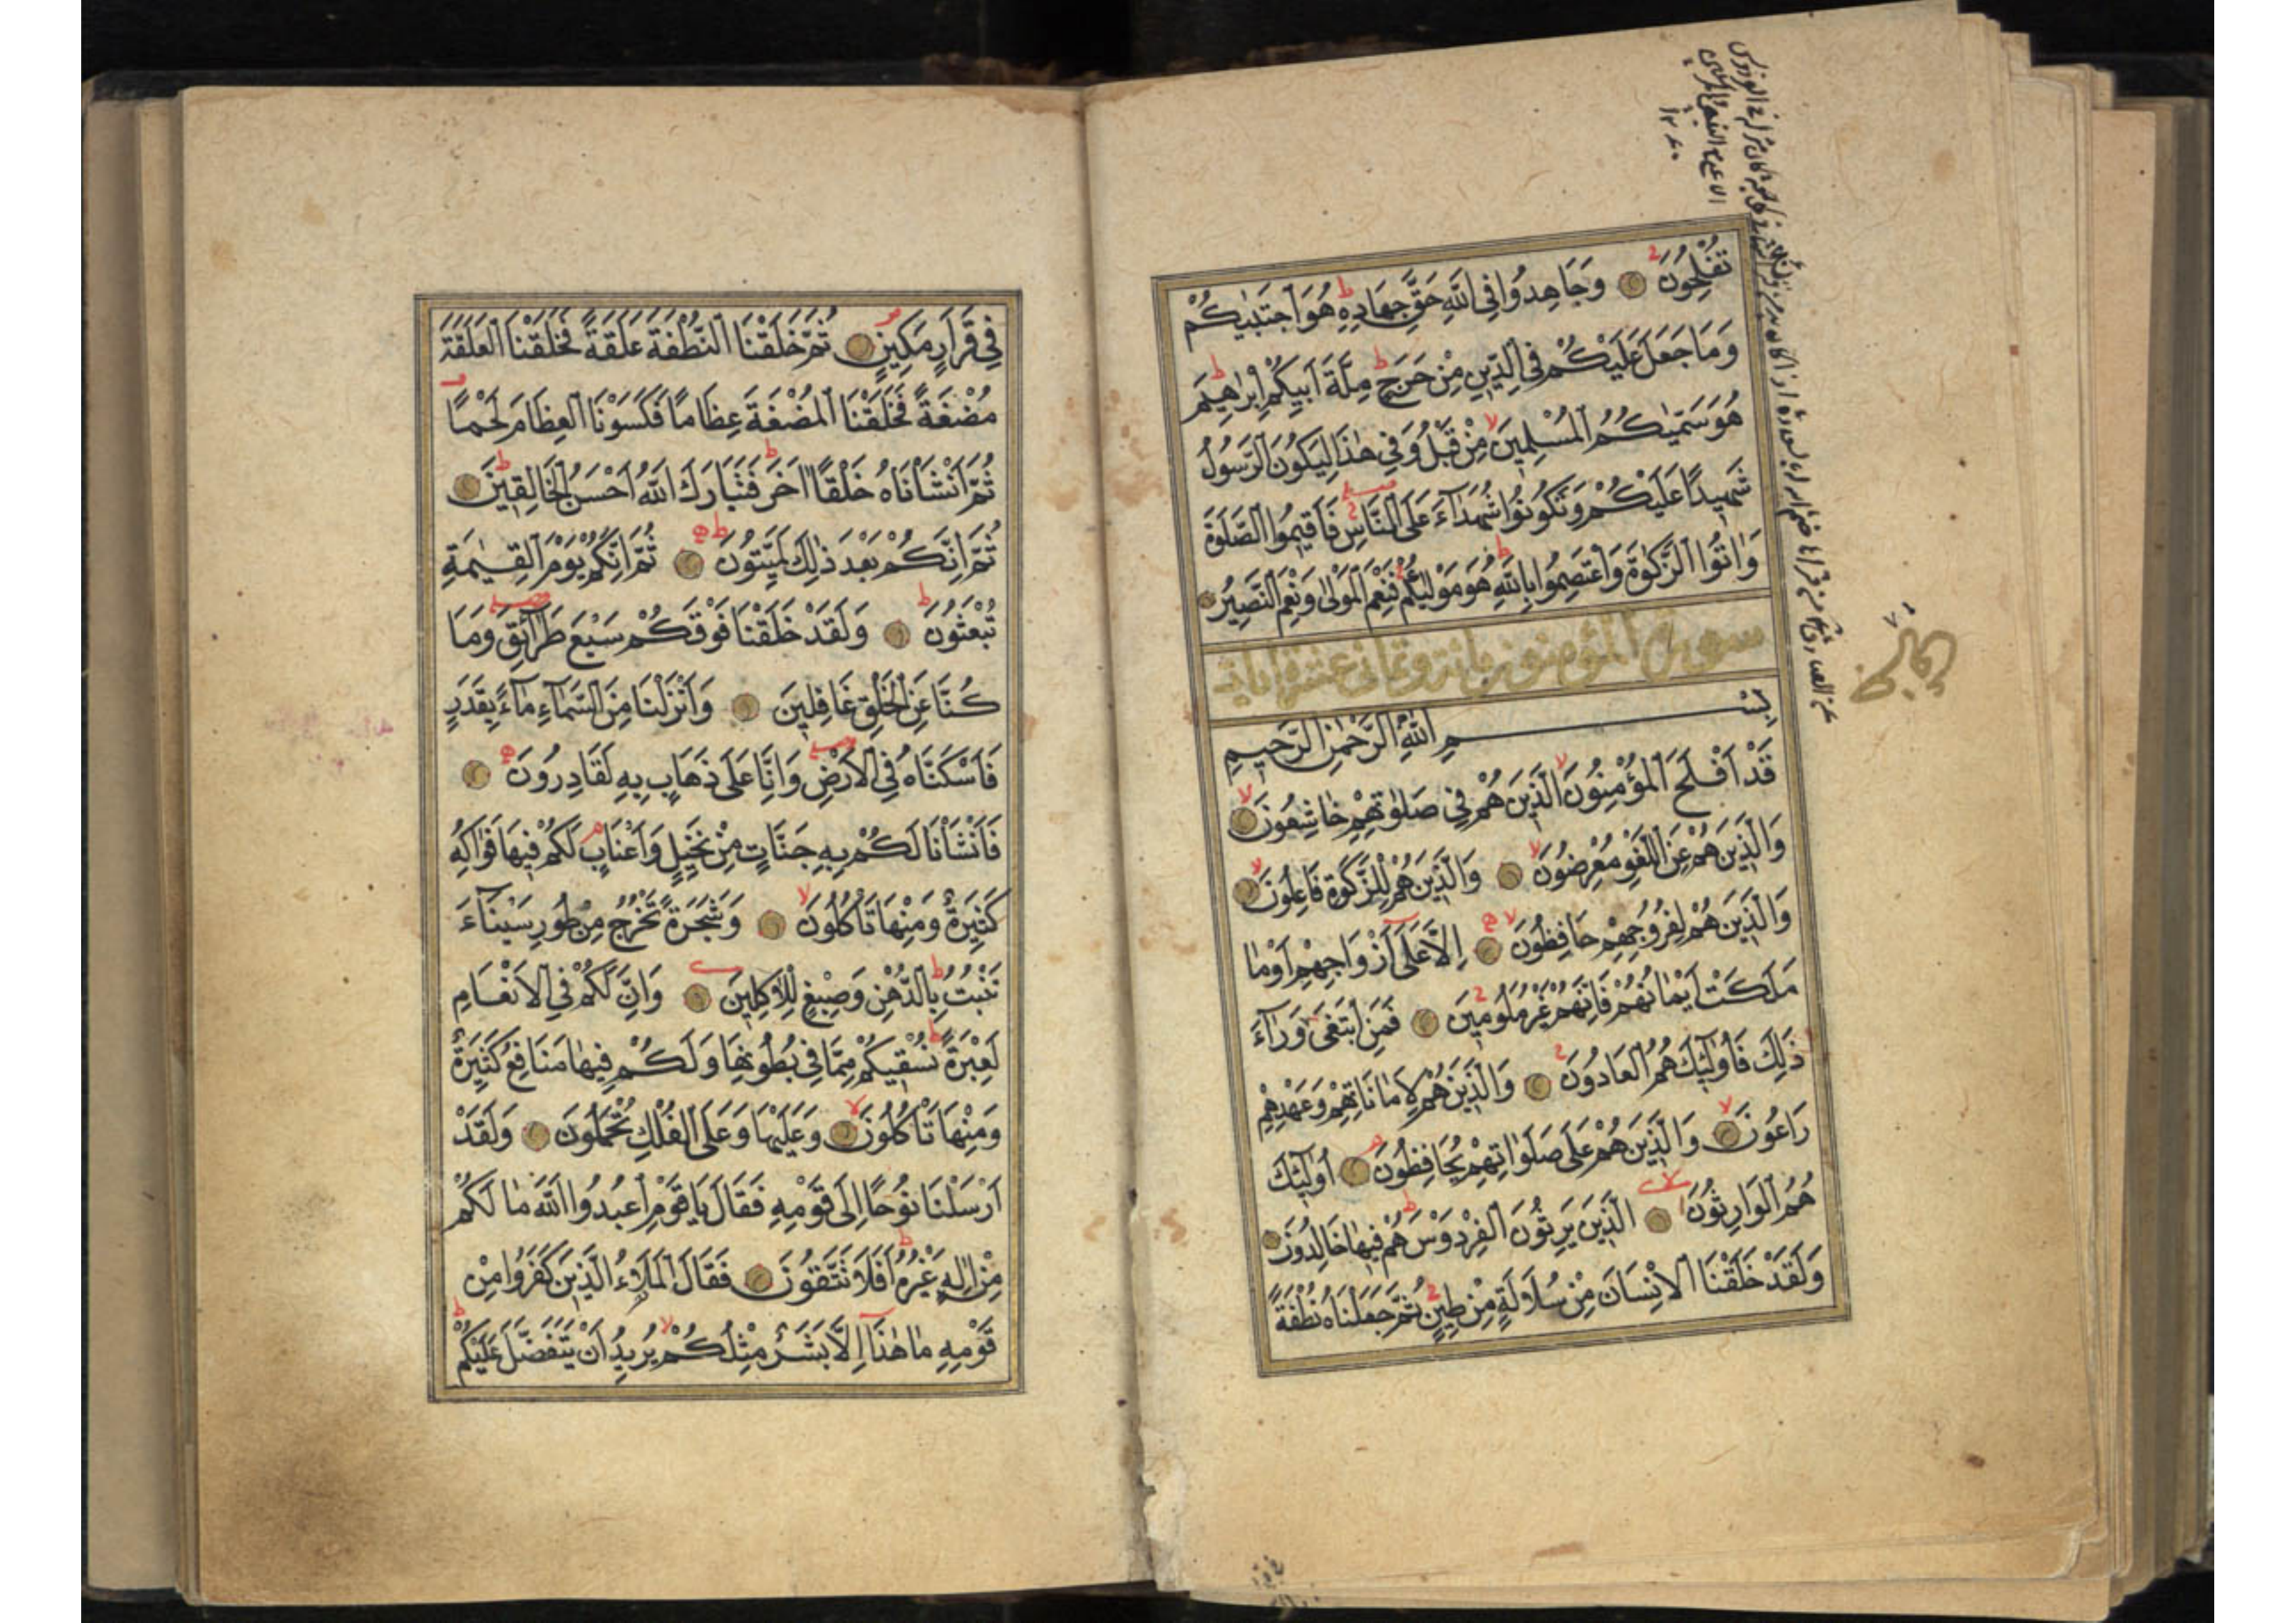 تُفْلِحُونَ وَجَاهِدُوا فِي اللّٰهِ حَقَّ جِهَادِهِ هُوَ اجْتَبٰيكُمْ
وَمَا جَعَلَ عَلَيْكُمْ فِي الدِّينِ مِنْ حَرَجٍ مِلَّةَ اَبِيكُمْ اِبْرٰهِيمَ
هُوَ سَمّٰيكُمُ الْمُسْلِمِينَ مِنْ قَبْلُ وَفِي هٰذَا لِيَكُونَ الرَّسُولُ
شَهِيدًا عَلَيْكُمْ وَتَكُونُوا شُهَدَآءَ عَلَى النَّاسِ فَاَقِيمُوا الصَّلٰوةَ
وَاٰتُوا الزَّكٰوةَ وَاعْتَصِمُوا بِاللّٰهِ هُوَ مَوْلٰيكُمْ فَنِعْمَ الْمَوْلٰى وَنِعْمَ النَّصِيرُ
سورة المؤمنون مائة وثماني عشرة اية
بِسْمِ اللّٰهِ الرَّحْمٰنِ الرَّحِيمِ
قَدْ اَفْلَحَ الْمُؤْمِنُونَ الَّذِينَ هُمْ فِي صَلٰوتِهِمْ خَاشِعُونَ
وَالَّذِينَ هُمْ عَنِ اللَّغْوِ مُعْرِضُونَ وَالَّذِينَ هُمْ لِلزَّكٰوةِ فَاعِلُونَ
وَالَّذِينَ هُمْ لِفُرُوجِهِمْ حَافِظُونَ اِلَّا عَلٰٓى اَزْوَاجِهِمْ اَوْ مَا
مَلَكَتْ اَيْمَانُهُمْ فَاِنَّهُمْ غَيْرُ مَلُومِينَ فَمَنِ ابْتَغٰى وَرَآءَ
ذٰلِكَ فَاُولٰٓئِكَ هُمُ الْعَادُونَ وَالَّذِينَ هُمْ لِاَمَانَاتِهِمْ وَعَهْدِهِمْ
رَاعُونَ وَالَّذِينَ هُمْ عَلٰى صَلَوَاتِهِمْ يُحَافِظُونَ اُولٰٓئِكَ
هُمُ الْوَارِثُونَ الَّذِينَ يَرِثُونَ الْفِرْدَوْسَ هُمْ فِيهَا خَالِدُونَ
وَلَقَدْ خَلَقْنَا الْاِنْسَانَ مِنْ سُلَالَةٍ مِنْ طِينٍ ثُمَّ جَعَلْنَاهُ نُطْفَةً
فِي قَرَارٍ مَكِينٍ ثُمَّ خَلَقْنَا النُّطْفَةَ عَلَقَةً فَخَلَقْنَا الْعَلَقَةَ
مُضْغَةً فَخَلَقْنَا الْمُضْغَةَ عِظَامًا فَكَسَوْنَا الْعِظَامَ لَحْمًا
ثُمَّ اَنْشَأْنَاهُ خَلْقًا اٰخَرَ فَتَبَارَكَ اللّٰهُ اَحْسَنُ الْخَالِقِينَ
ثُمَّ اِنَّكُمْ بَعْدَ ذٰلِكَ لَمَيِّتُونَ ثُمَّ اِنَّكُمْ يَوْمَ الْقِيٰمَةِ
تُبْعَثُونَ وَلَقَدْ خَلَقْنَا فَوْقَكُمْ سَبْعَ طَرَآئِقَ وَمَا
كُنَّا عَنِ الْخَلْقِ غَافِلِينَ وَاَنْزَلْنَا مِنَ السَّمَآءِ مَآءً بِقَدَرٍ
فَاَسْكَنَّاهُ فِي الْاَرْضِ وَاِنَّا عَلٰى ذَهَابٍ بِهِ لَقَادِرُونَ
فَاَنْشَأْنَا لَكُمْ بِهِ جَنَّاتٍ مِنْ نَخِيلٍ وَاَعْنَابٍ لَكُمْ فِيهَا فَوَاكِهُ
كَثِيرَةٌ وَمِنْهَا تَأْكُلُونَ وَشَجَرَةً تَخْرُجُ مِنْ طُورِ سَيْنَآءَ
تَنْبُتُ بِالدُّهْنِ وَصِبْغٍ لِلْاٰكِلِينَ وَاِنَّ لَكُمْ فِي الْاَنْعَامِ
لَعِبْرَةً نُسْقِيكُمْ مِمَّا فِي بُطُونِهَا وَلَكُمْ فِيهَا مَنَافِعُ كَثِيرَةٌ
وَمِنْهَا تَأْكُلُونَ وَعَلَيْهَا وَعَلَى الْفُلْكِ تُحْمَلُونَ وَلَقَدْ
اَرْسَلْنَا نُوحًا اِلٰى قَوْمِهِ فَقَالَ يَا قَوْمِ اعْبُدُوا اللّٰهَ مَا لَكُمْ
مِنْ اِلٰهٍ غَيْرُهُ اَفَلَا تَتَّقُونَ فَقَالَ الْمَلَؤُا الَّذِينَ كَفَرُوا مِنْ
قَوْمِهِ مَا هٰذَآ اِلَّا بَشَرٌ مِثْلُكُمْ يُرِيدُ اَنْ يَتَفَضَّلَ عَلَيْكُمْ